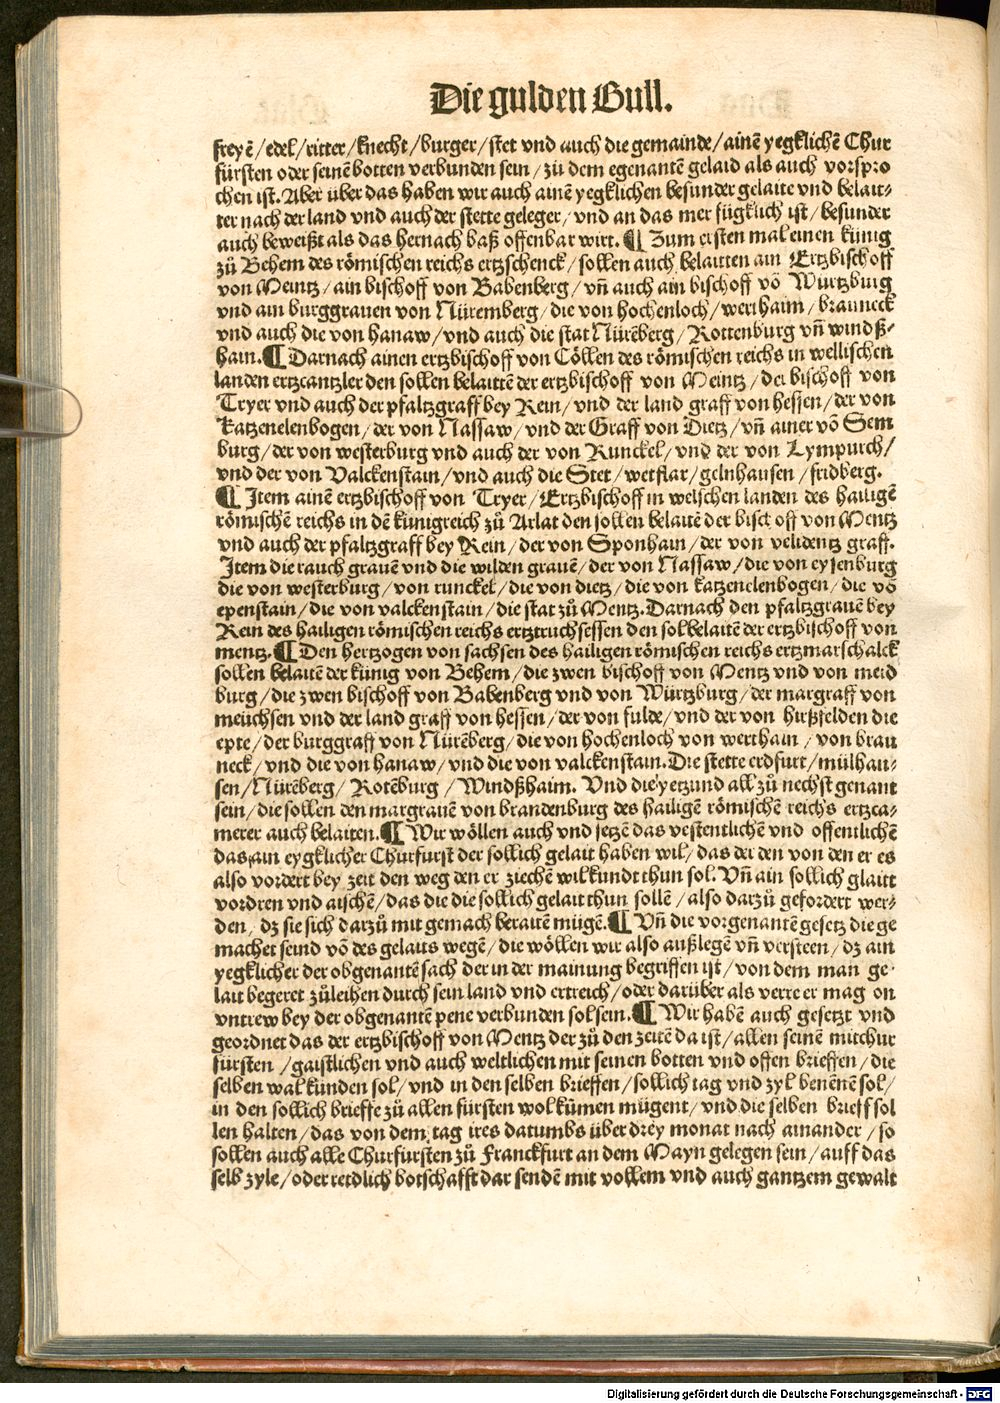 Die gulden Bull.
freyē/edel/ritter/knecht/burger/stet vnd auch die gemainde/ainē yegklichē Chur
fürsten oder seinē botten verbunden sein/zů dem egenantē gelaid als auch vorspro
chen ist. Aber über das haben wir auch ainē yegklichen besunder gelaite vnd belait⸗
ter nach der land vnd auch der stette geleger/vnd an das mer fügklich ist/besunder
auch beweißt als das hernach baß offenbar wirt. ¶ Zum ersten mal einen künig
zů Behem des römischen reichs ertzschenck/sollen auch belaitten ain Ertzbischoff
von Meintz/ain bischoff von Babenberg/vñ auch ain bischoff vō Wurtzburg
vnd ain burggrauen von Nüremberg/die von hochenloch/werthaim/brauneck
vnd auch die von hanaw/vnd auch die stat Nürēberg/Rottenburg vñ windß⸗
hain. ¶ Darnach ainen ertzbischoff von Cöllen des römischen reichs in wellischen
landen ertzcantzler den sollen belaittē der ertzbischoff von Meintz/der bischoff von
Tryer vnd auch der pfaltzgraff bey Rein/vnd der land graff von hessen/der von
Katzenelenbogen/der von Nassaw/vnd der Graff von Dietz/vñ ainer vō Sem
burg/der von westerburg vnd auch der von Runckel/vnd der von Lympurch/
vnd der von Valckenstain/vnd auch die Stet/wetflar/gelnhausen/fridberg.
¶ Item ainē ertzbischoff von Tryer/Ertzbischoff in welschen landen des hailigē
römischē reichs in dē künigreich zů Arlat den sollen belaitē der bischoff von Mentz
vnd auch der pfaltzgraff bey Rein/der von Sponhain/der von veldentz graff.
Item die rauch grauē vnd die wilden grauē/der von Nassaw/die von eysenburg
die von westerburg/von runckel/die von dietz/die von katzenelenbogen/die vō
epenstain/die von valckenstain/die stat zů Mentz. Darnach den pfaltzgrauē bey
Rein des hailigen römischen reichs ertztruchsessen den sol belaitē der ertzbischoff von
mentz. ¶ Den hertzogen von sachsen des hailigen römischen reichs ertzmarschalck
sollen belaitē der künig von Behem/die zwen bischoff von Mentz vnd von meid
burg/die zwen bischoff von Babenberg vnd von Würtzburg/der margraff von
meichsen vnd der land graff von hessen/der von fulde/vnd der von hirßfelden die
epte/der burggraff von Nürēberg/die von hochenloch von werthain/von brau
neck/vnd die von hanaw/vnd die von valckenstain. Die stette erdfurt/mülhau⸗
sen/Nürēberg/Rotēburg/Windßhaim. Vnd die yetzund all zů nechst genant
sein/die sollen den margrauē von brandenburg des hailigē römischē reichs ertzca⸗
merer auch belaiten. ¶ Wir wöllen auch vnd setzē das vestentlichē vnd offentlichē
das ain eygklicher Churfurst der sollich gelait haben wil/das der den von den er es
also vordert bey zeit den weg den er ziechē wil kundt thun sol. Vñ ain sollich glaitt
vordren vnd aischē/das die die sollich gelait thun sollē/also darzů gefordert wer⸗
den/dz sie sich darzů mit gemach beraitē mügē. ¶ Vñ die vorgenantē gesetz die ge
machet seind vō des gelaits wegē/die wöllen wir also außlegē vñ versteen/dz ain
yegklicher der obgenantē sach der in der mainung begriffen ist/von dem man ge⸗
lait begeret zůleihen durch sein land vnd ertreich/oder darüber als verre er mag on
vntrew bey der obgenantē pene verbunden sol sein. ¶ Wir habē auch gesetzt vnd
geordnet das der ertzbischoff von Mentz der zů den zeitē da ist/allen seinē mitchur
fürsten/gaistlichen vnd auch weltlichen mit seinen botten vnd offen brieffen/die
selben wal künden sol/vnd in den selben brieffen/sollich tag vnd zyl benēnē sol/
in den sollich brieffe zů allen fürsten wol kümen mügent/vnd die selben brieff sol
len halten/das von dem tag ires datumbs über drey monat nach ainander/so
sollen auch alle Churfursten zů Franckfurt an dem Mayn gelegen sein/auff das
selb zyle/oder redlich botschafft dar sendē mit vollem vnd auch gantzem gewalt
Digitalisierung gefördert durch die Deutsche Forschungsgemeinschaft - DFG